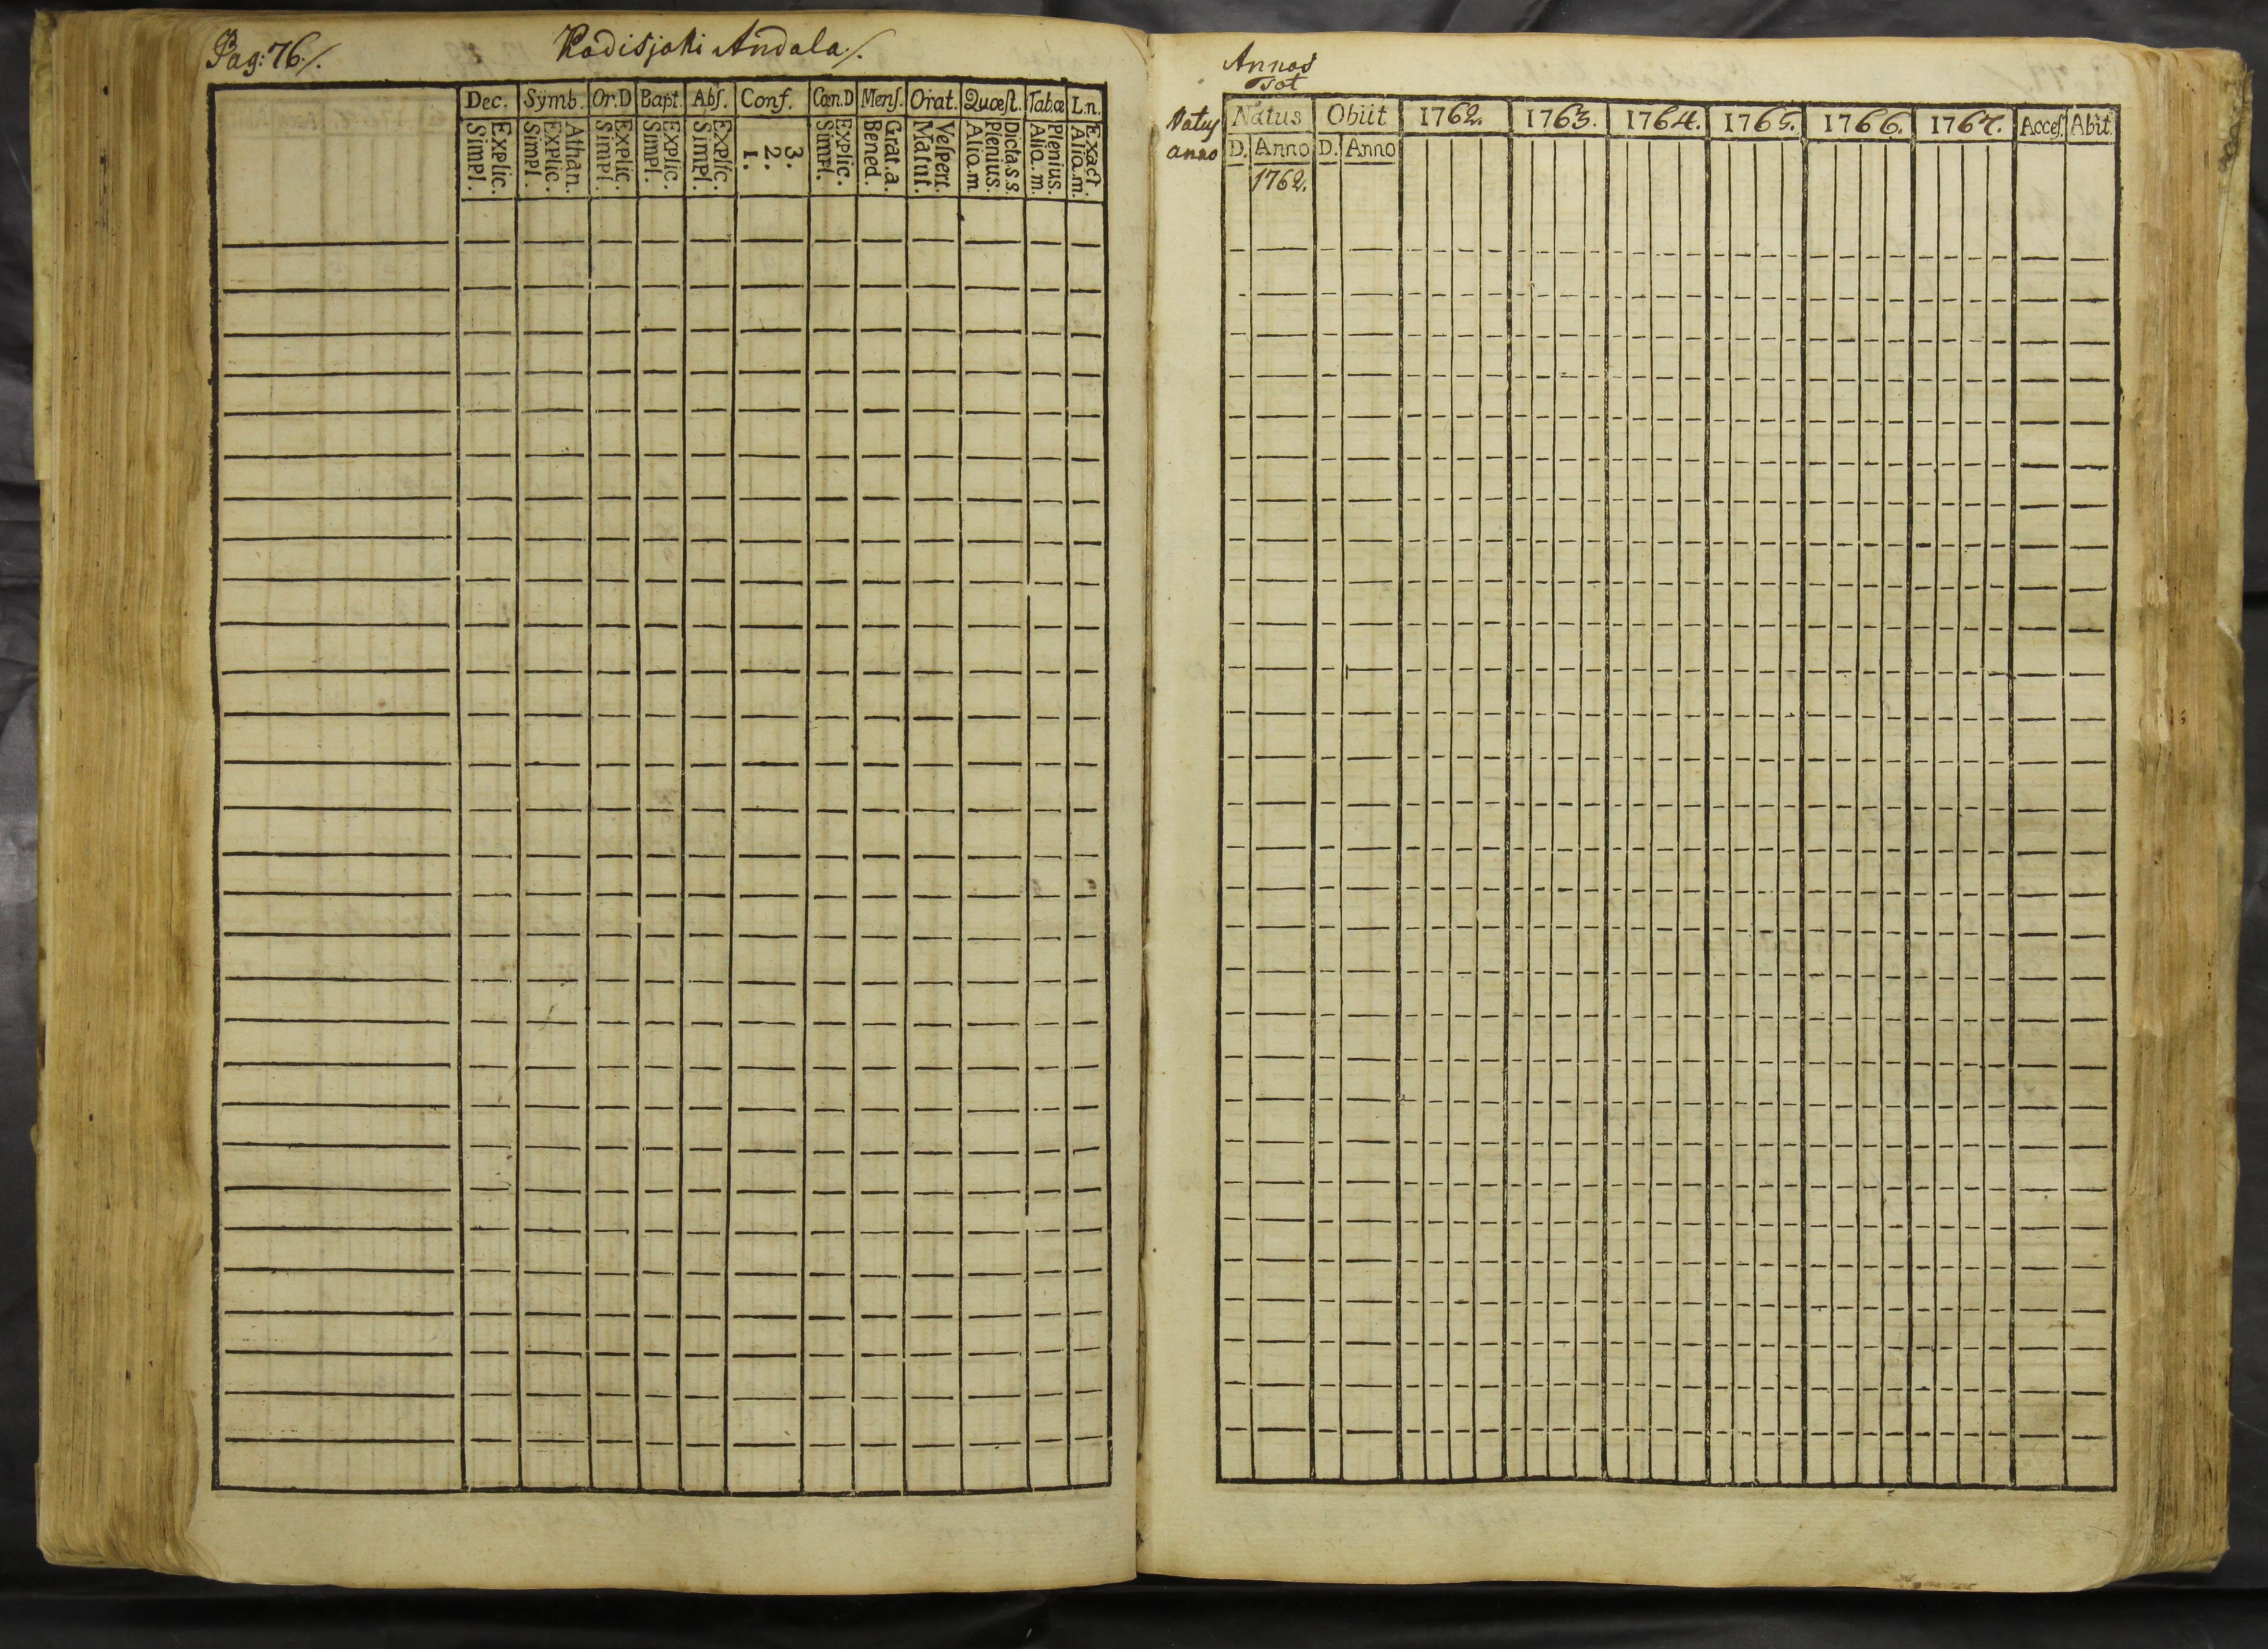 Pag: 76./. Kadisjoki Andala./.
Dec. Sÿmb. Or.D Bapt. Abſ. Conf. Cœn.D Menſ. Orat. Quœſt. Tabœ L.n.
Simpl. Explic. Simpl. Explic. Athan. Simpl. Explic. Simpl. Explic. Simpl. Explic. 1. 2. 3. Simpl. Explic. Bened. Grat.a. Matut. Veſpert. Aliq.m Plenius. Dicta.s.s. Aliq.m. Plenius. Aliq.m. Exact.
Annos
Tot
Natus Obiit 1762. 1763. 1764. 1765. 1766. 1767. Acceſ. Abit.
Natus
anno
D. Anno D. Anno
1762.